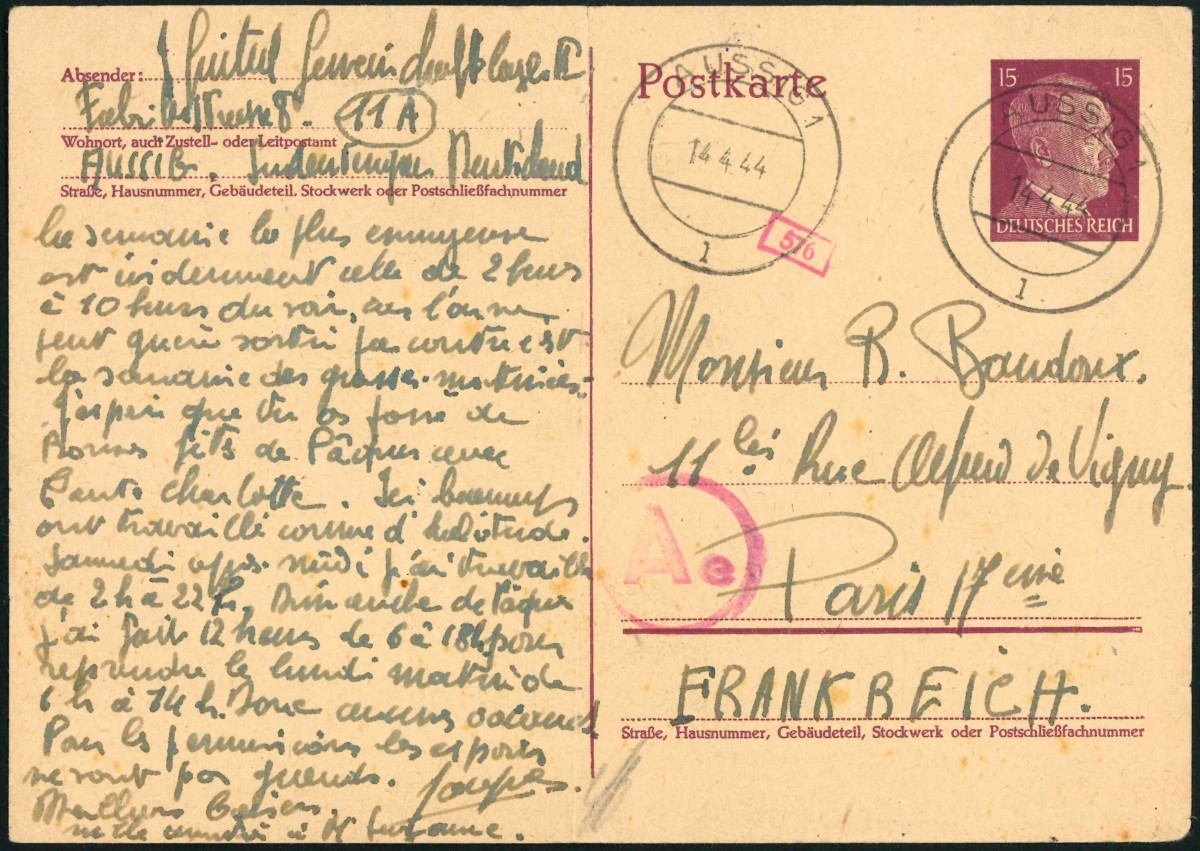 Absender:
Wohnort, auch Zustell- oder Leitpostamt
11A
Straße, Hausnummer, Gebäudeteil. Stockwerk oder Postschließfachnummer
La semaine la plus ennuyeuse
est évidemment celle de 2 heures
à 10 heures du soir, car l'on ne
peut guère sortir par contre c'est
la semaine des grasses matinées.
J'espère que tu as passé de
Bonnes fêtes de Pâques avec
Tante Charlotte. Ici
ont travaillé comme d'habitude.
Samedi après-midi j'ai travaillé
de 2 h à 22 h, Dimanche de Pâques
j'ai fait 12 heures de 6 à 18h pour
reprendre le lundi matin de
6 h à 14 h. Donc aucune
Pour les permissions les espoirs
ne sont pas grands.
Meilleurs Baisers
Postkarte
AUSSIG 1
14.4.44
1
576
15 15
AUSSIG 1
14.4.44
1
DEUTSCHES REICH
Monsieur R. Baudoux.
11 bis Rue Alfred de Vigny
Ae
Paris 17 eme
FRANKREICH.
Straße, Hausnummer, Gebäudeteil, Stockwerk oder Postschließfachnummer